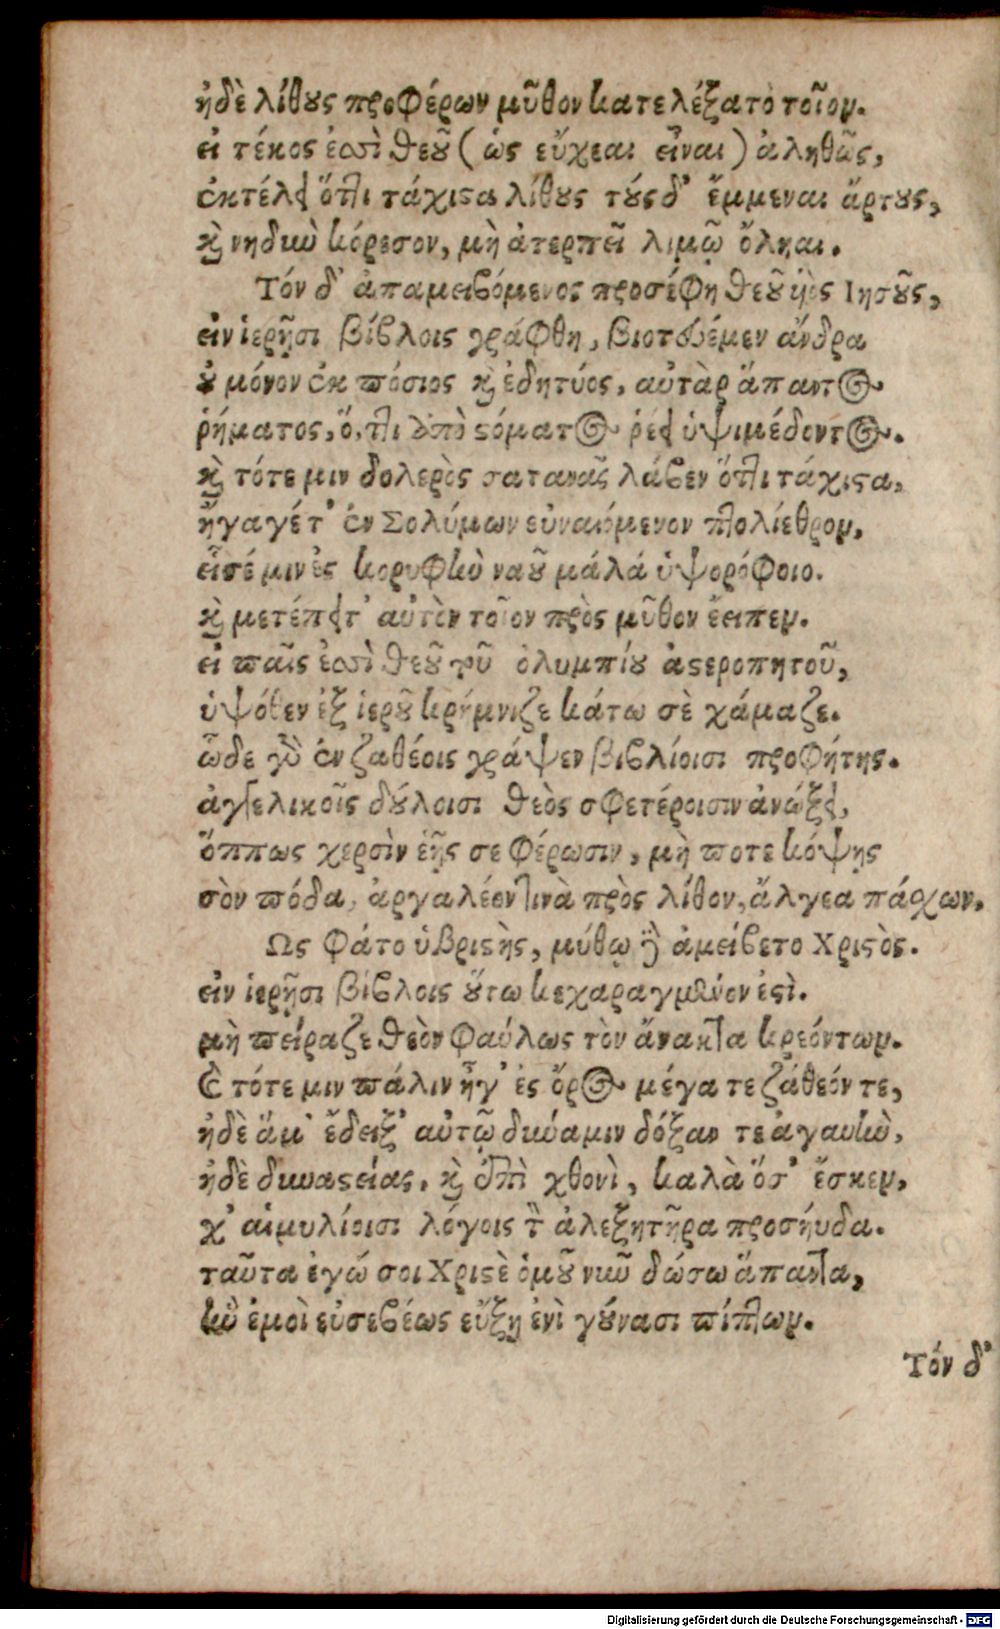 ἠδὲ λίθους προφέρων μῦθον κατελέξατο τοῖον.
εἰ τέκος ἐσσὶ θεοῦ (ὡς εὔχεαι εἶναι) ἀληθῶς,
ἐκτέλει ὅττι τάχιστα λίθους τούσδ' ἔμμεναι ἄρτους,
καὶ νηδὺν κόρεσον, μὴ ἀτερπεῖ λιμῷ ὄληαι.
Τὸν δ' ἀπαμειβόμενος προσέφη θεοῦ υἱὸς Ἰησοῦς,
εἰν ἱερῇσι βίβλοις γράφθη, βιοτευέμεν ἄνδρα
οὐ μόνον ἐκ πόσιος καὶ ἐδητύος, αὐτὰρ ἅπαντος
ῥήματος, ὅ, τι ἀπὸ στόματος ῥεῖ ὑψιμέδοντος.
καὶ τότε μιν δολερὸς σατανᾶς λάβεν ὅττι τάχιστα,
ἤγαγέ τ' ἐν Σολύμων εὐναιόμενον πτολίεθρον,
εἷσέ μιν ἐς κορυφὴν ναοῦ μάλά ὑψορόφοιο.
καὶ μετέπειτ' αὐτὸν τοῖον πρὸς μῦθον ἔειπεν.
εἰ παῖς ἐσσὶ θεοῦ τοῦ ὀλυμπίου ἀστεροπητοῦ,
ὑψόθεν ἐξ ἱεροῦ κρήμνιζε κάτω σὲ χάμαζε.
ὧδε γὰρ ἐν ζαθέοις γράψεν βιβλίοισι προφήτης.
ἀγγελικοῖς δούλοισι θεὸς σφετέροισιν ἀνώξει,
ὅππως χερσὶν ἑῇς σε φέρωσιν, μή ποτε κόψῃς
σὸν πόδα, ἀργαλέον τινὰ πρὸς λίθον, ἄλγεα πάσχων.
Ὣς φάτο ὑβριστὴς, μύθῳ δὲ ἀμείβετο Χριστὸς.
εἰν ἱερῇσι βίβλοις οὕτω κεχαραγμένον ἐστὶ.
μὴ πείραζε θεὸν φαύλως τὸν ἄνακτα κρεόντων.
Καὶ τότε μιν πάλιν ἦγ' ἐς ὄρος μέγα τε ζάθεόν τε,
ἠδὲ ἅμ' ἔδειξ' αὐτῷ δύναμιν δόξαν τε ἀγαυὴν,
ἠδὲ δυναστείας, καὶ ἐπὶ χθονὶ, καλὰ ὅσ' ἔσκεν,
χ' αἱμυλίοισι λόγοις τὸν ἀλεξητῆρα προσηύδα.
ταῦτα ἐγώ σοι Χριστὲ ὁμοῦ νῦν δώσω ἅπαντα,
ἢν ἐμοὶ εὐσεβέως εὔξῃ ἐνὶ γούνασι πίπτων.
Τὸν δ'